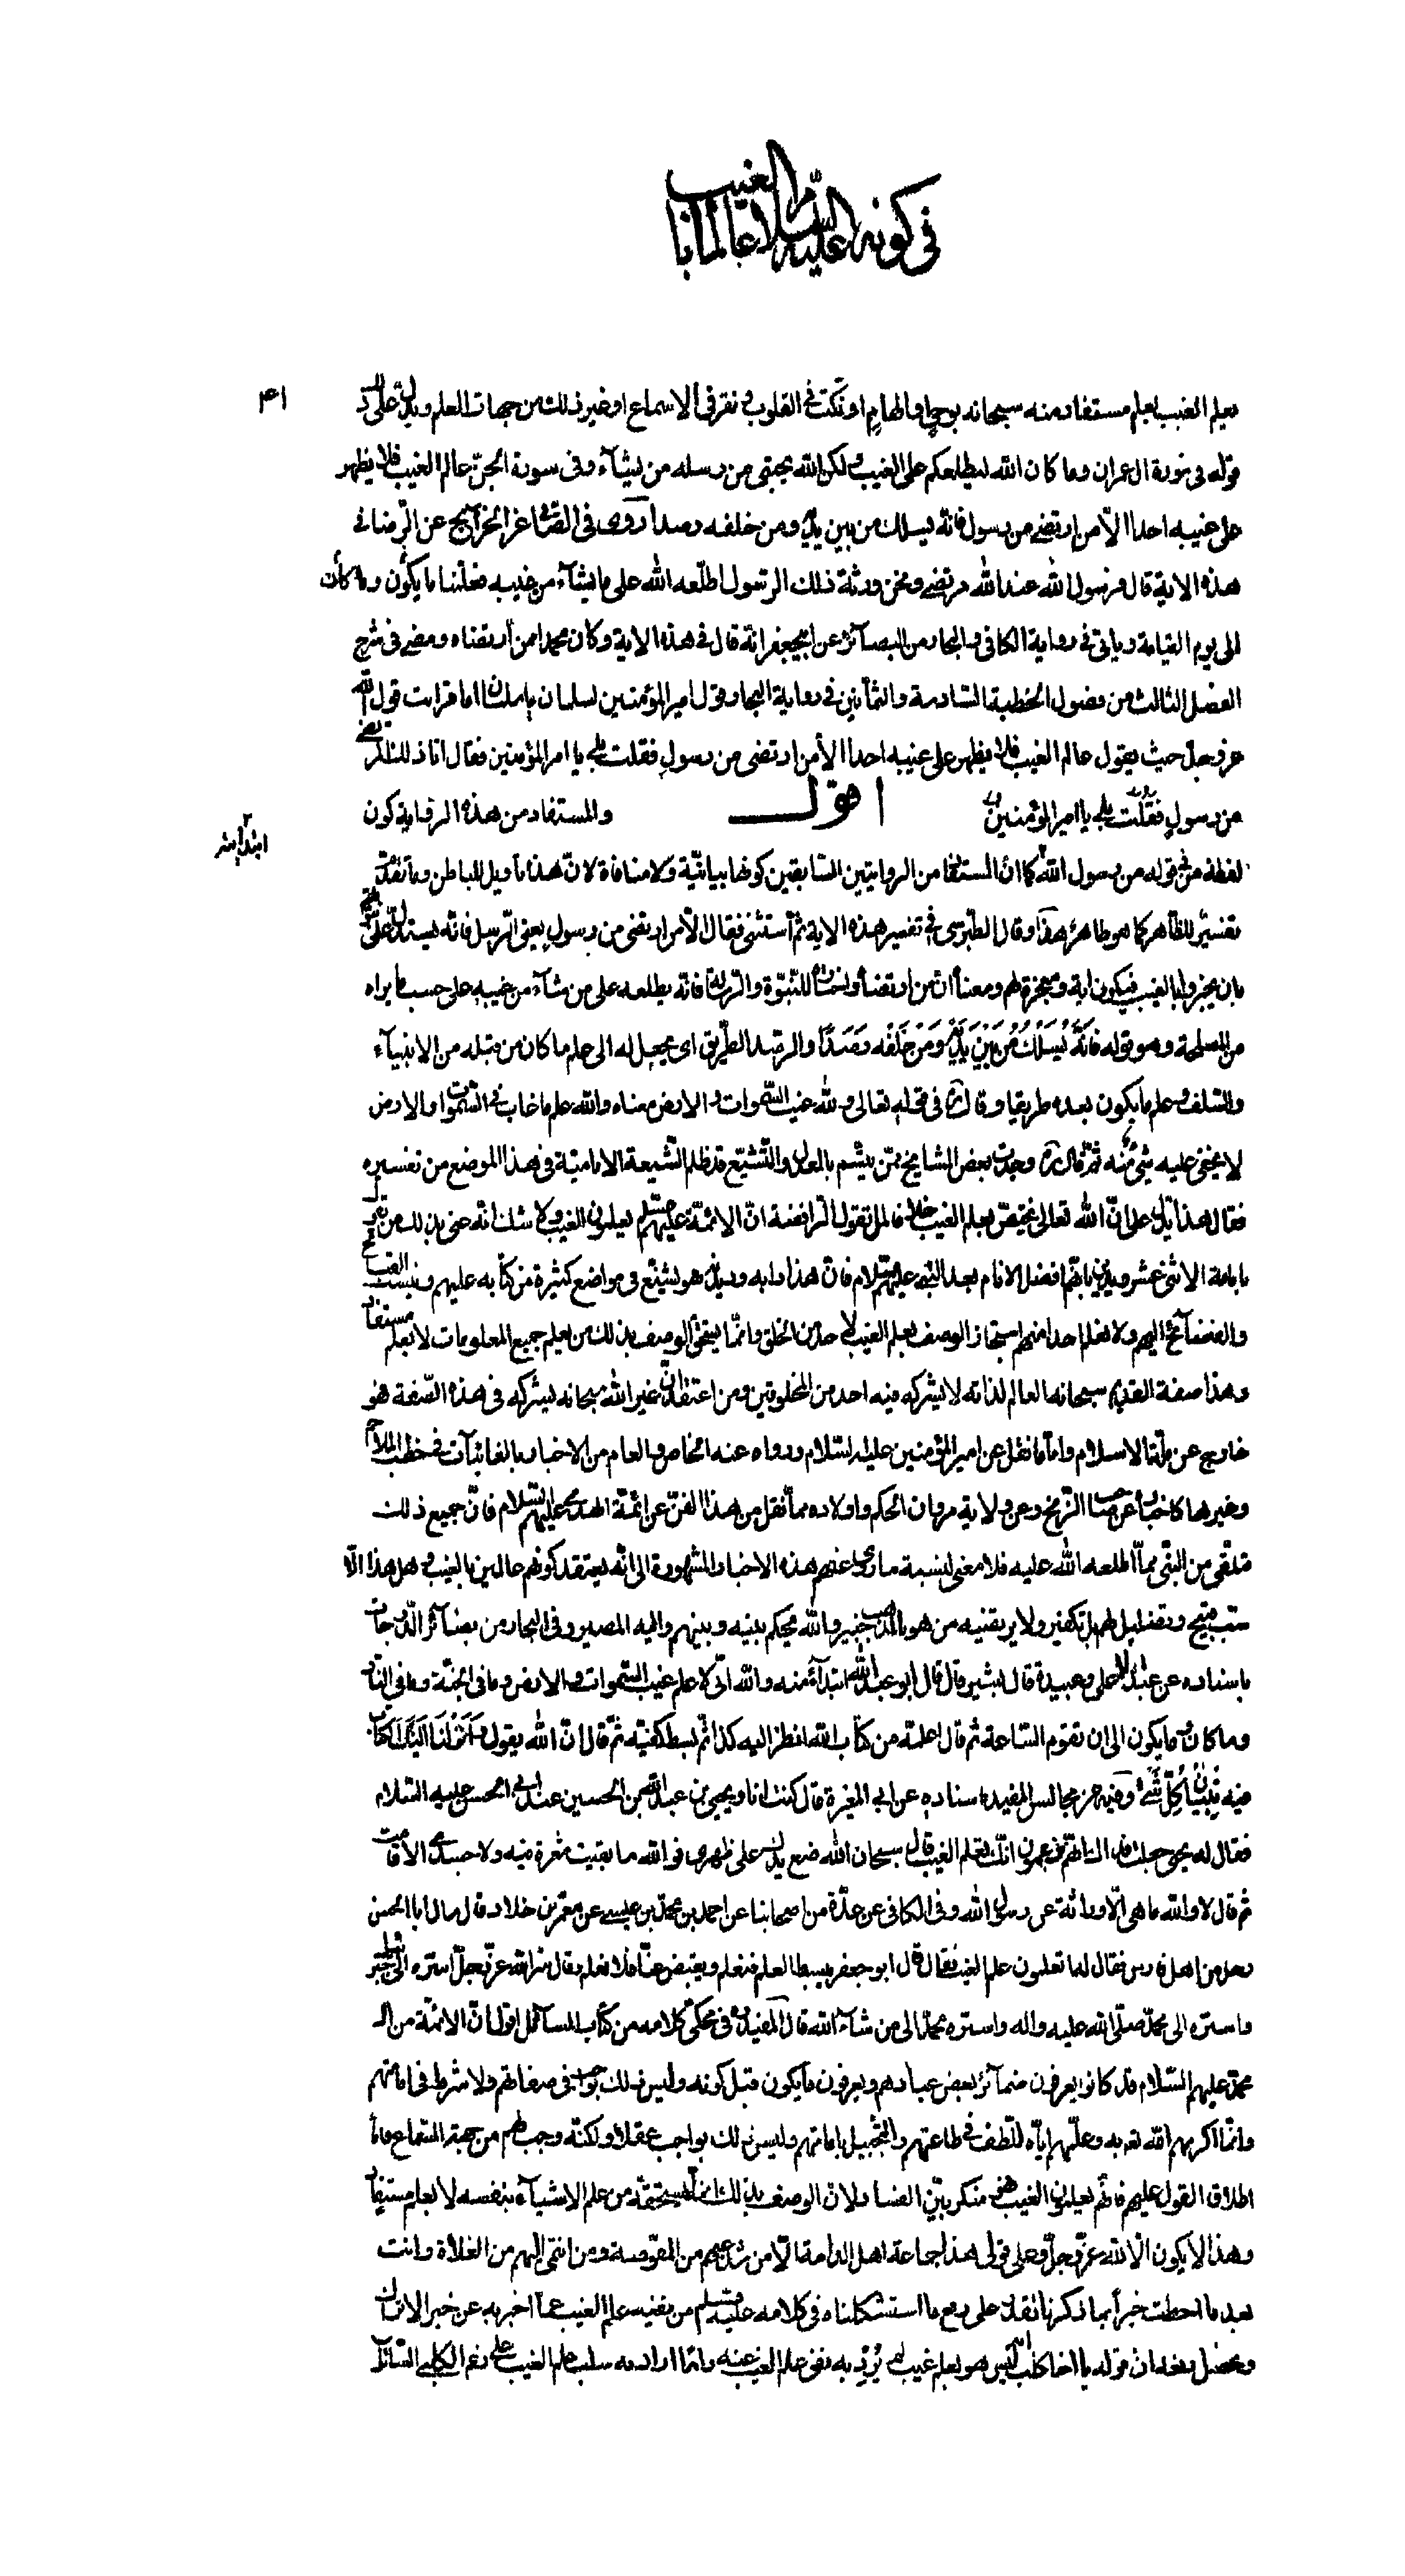 في كونه عليه السلام عالما بالغيب
۴۱
يعلم الغيب بعلم مستفاد منه سبحانه بوحي او الهام او نكت في القلوب و نقر في الاسماع او غير ذلك من جهات العلم ويدل على ذلك
قوله في سورة ال عمران وما كان الله ليطلعكم على الغيب و لكن الله يجتبى من رسله من يشآء وفى سورة الجن عالم الغيب فلا يظهر
على غيبه احدا الّا من ارتضى من رسول فانّه يسلك من بين يديه ومن خلفه رصدا روى فى الصّافي عن الخرآيج عن الرّضا في
هذه الاية قال فرسول الله عند الله مرتضى ونحن ورثة ذلك الرّسول اطلعه الله على ما يشآء من غيبه فعلّمنا ما يكون وما كان
الى يوم القيامة و ياتى في رواية الكافى و البحار من البصآئر عن ابيجعفر انّه قال في هذه الاية وكان محمد ممن ارتضاه ومضى فى شرح
الفصل الثالث من فصول الخطبة السّادسة والثّمانين في رواية البحار قول امير المؤمنين لسلمان يا سلمان اما قرات قول الله
عز وجل حيث يقول عالم الغيب فلا يظهر على غيبه احدا الّا من ارتضى من رسول فقلت بلى يا امير المؤمنين فقال انا ذلك المرتضى
من رسول فقلت بلى يا امير المؤمنين اقول والمستفاد من هذه الرواية كون
لفظة من في قوله من رسول الله كما انّ المستفاد من الروايتين السّابقتين كونها بيانيّة ولا منافاة لانّ هذا تأويل للباطن وما تقدّم
تفسير للظّاهر كما هو ظاهر هذا وقال الطّبرسى في تفسير هذه الاية ثم استثنى فقال الّا من ارتضى من رسول يعنى الرّسل فانّه يستدل على نبوّتهم
بان يخبروا بالغيب فيكون اية ومعجزة لهم ومعناه ان من ارتضاه و اختاره للنّبوّة والرّسالة فانّه يطلعه على من شآء من غيبه على حسب ما يراه
من المصلحة وهو قوله فَانَّهُ يَسْلُكُ مِنْ بَيْنِ يَدَيْهِ وَمِنْ خَلْفِه رَصَدًا والرّصد الطّريق اى يجعل له الى علم ما كان من قبله من الانبيآء
والسّلف و علم ما يكون بعده طريقا و قال ره في قوله تعالى ولله غيب السّموات و الارض معناه والله علم ما غاب في السّموات والارض
لا يخفى عليه شئ منه ثمّ قال ره وجدت بعض المشايخ ممّن يتّسم بالعدل والتّشيّع قد ظلم الشّيعة الاماميّة فى هذا الموضع من تفسيره
فقال هذا يدل على انّ الله تعالى يختصّ بعلم الغيب خلافا لما تقول الرّافضة انّ الائمّة عليهم السّلم يعلمون الغيب ولا شك انّه عنى بذلك من يقول
بامامة الاثنى عشر ويدين بانّهم افضل الانام بعد النّبي عليهم السلام فانّ هذا دابه وديدنه هو يشنّع فى مواضع كثيرة من كتابه عليهم وينسب القبايح
والفضآئح اليهم ولا نعلم احدا منهم استجاز الوصف بعلم الغيب لاحد من الخلق وانّما يستحق الوصف بذلك من يعلم جميع المعلومات لا بعلم مستفاد
وهذا صفة القديم سبحانه العالم لذاته لا يشركه فيه احد من المخلوقين ومن اعتقد انّ غير الله سبحانه يشركه فى هذه الصّفة فهو
خارج عن ملّة الاسلام وامّا ما نقل عن امير المؤمنين عليه السّلام ورواه عنه الخاص و العام من الاخبار بالغائبات في خطب الملاحم
وغيرها كاخباره عن صاحب الزّنج وعن ولاية مروان الحكم واولاده ممّا نقل من هذا الفنّ عن ائمّة الهدى عليهم السّلام فانّ جميع ذلك
متلقّى من النّبى ممّا اطلعه الله عليه فلا معنى لنسبة ما روى عنهم هذه الاخبار المشهورة الى انّه يعتقد كونهم عالمين بالغيب و هل هذا الّا
سبّ قبيح وتضليل لهم بل تكفير ولا يرتضيه من هو بالمذاهب خبير والله يحكم بينه و بينهم واليه المصير وفى البحار من بصآئر الدّرجات
باسناده عن عبد الاعلى و عبيدة قال بشير قال قال ابو عبد الله ابتدآء منه والله انّى لا علم غيب السّموات و الارض وما في الجنّة وما فى النّار
وما كان و ما يكون الى ان تقوم السّاعة ثم قال اعلمه من كتاب الله انظر اليه كذا ثمّ بسط كفّيه ثمّ قال انّ الله يقول وَ اَنْزَلْنَا اِلَيْكَ الْكِتَابَ
فيه تِبْيَانُ كُلِّ شَىْءٍ وفيه من مجالس المفيد باسناده عن ابى المغيرة قال كنت انا ويحيى بن عبد الله بن الحسين عند ابى الحسن عليه السّلام
فقال له يحيى جعلت فداك انّهم يزعمون انّك تعلم الغيب قال سبحان الله ضع يدك على ظهرى فوالله ما بقيت شعرة فيه ولا جسدى الّا قامت
ثم قال لا والله ما هى الّا وراثة عن رسول الله وفى الكافى عن عدّة من اصحابنا عن احمد بن محمّد بن عيسى عن معمّر بن خلاد قال سال ابا الحسن
رجل من اهل فارس فقال له اتعلمون علم الغيب فقال قال ابو جعفر يبسط لنا العلم فنعلم ويقبض عنّا فلا نعلم وقال سرّ الله عزّ وجلّ اسرّه الى جبرئيل
واسرّه الى محمّد صلّى الله عليه واله واسرّه محمّد الى من شآء الله قال المفيد ره في محكىّ كلامه من كتاب المسآئل اقول انّ الائمّة من ال
محمّد عليهم السّلام قد كانوا يعرفون ضمآئر بعض عبادهم ويعرفون ما يكون قبل كونه وليس ذلك بواجب فى صفاتهم ولا شرط فى امامتهم
وانّما اكرمهم الله تعه به وعلّمهم ايّاه للّطف في طاعتهم والتّبجيل بامامتهم وليس ذلك بواجب عقلا ولكنّه وجب لهم من جهة السّماع فامّا
اطلاق القول عليهم فانّهم يعلمون الغيب فهو منكر بيّن الفساد لانّ الوصف بذلك انّما يستحقّه من علم الاشيآء بنفسه لا بعلم مستفاد
وهذا لا يكون الّا لله عزّ وجلّ وعلى قولى هذا جماعة اهل الامامة الّا من شذ عنهم من المفوّضة ومن انتمى اليهم من الغلاة وانت
بعد ما احطت خبرا بما ذكرنا تقدر على رفع ما استشكلناه في كلامه عليه السّلم من نفيه علم الغيب عمّا اخبر به عن خبر الاتراك
وحصل معه ان قوله يا اخا كلب ليس هو بعلم غيب لم يُرِدْ به نفى علم الغيب عنه وانّما اراد به سلب علم الغيب على زعم الكلبى السّائل